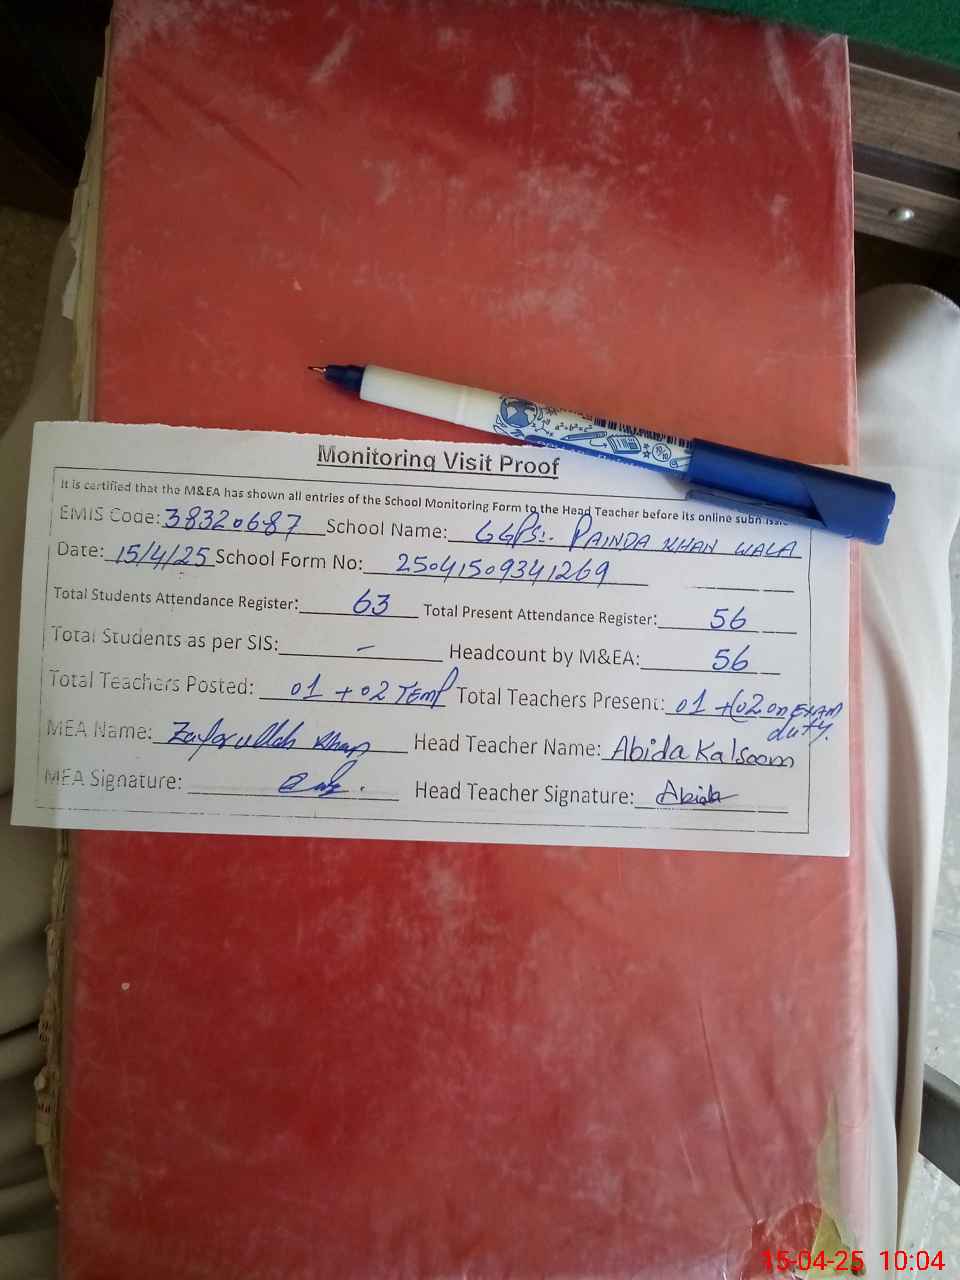 Monitoring Visit Proof
It is certified that the M&EA has shown all entries of the School Monitoring Form to the Head Teacher before its online
EMIS Code: 38320687 School Name: GGPS:. PAINDA KHAN WALA
Date: 15/4/25 School Form No: 25041509341269
Total Students Attendance Register: 63 Total Present Attendance Register: 56
Total Students as per SIS: - Headcount by M&EA: 56
Total Teachers Posted: 01 + 02 Temp Total Teachers Present: 01 + (02 on EXAM duty.
MEA Name: Zafarullah Khan Head Teacher Name: Abida Kalsoom
MEA Signature: Head Teacher Signature: Abida
a²+b²=c²
15-04-25 10:04